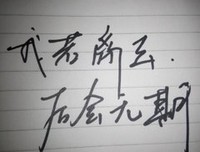 我若离去.
后会无期